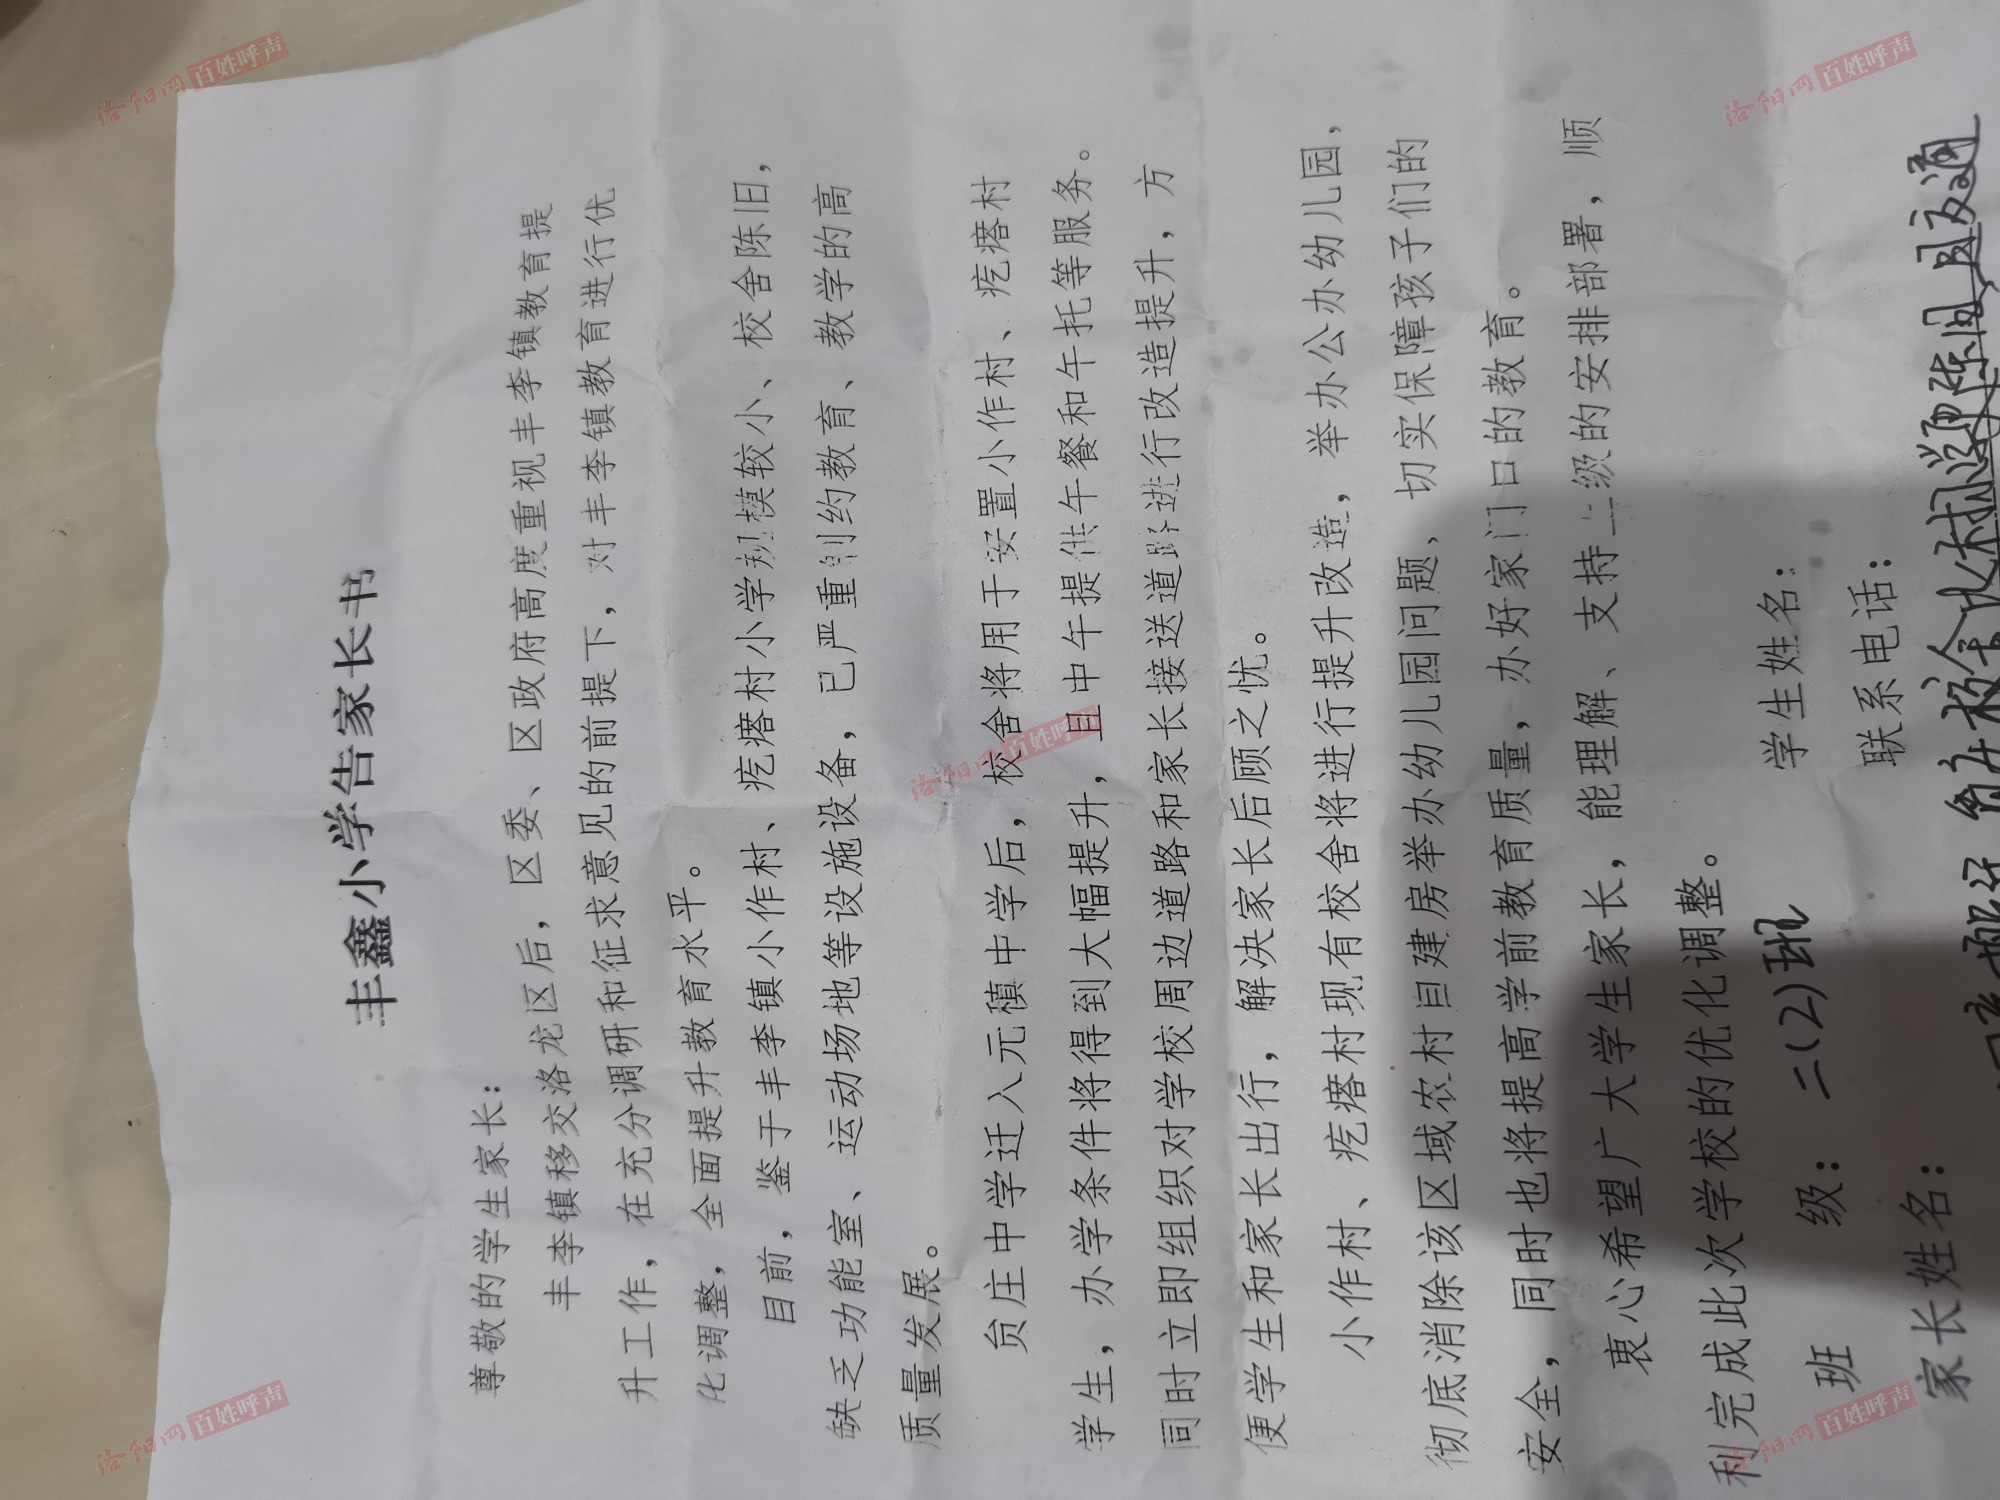 丰鑫小学告家长书
尊敬的学生家长：
丰李镇移交洛龙区后，区委、区政府高度重视丰李镇教育提
升工作，在充分调研和征求意见的前提下，对丰李镇教育进行优
化调整，全面提升教育水平。
目前，鉴于丰李镇小作村、疙瘩村小学规模较小、校舍陈旧，
缺乏功能室、运动场地等设施设备，已严重制约教育、教学的高
质量发展。
贠庄中学迁入元稹中学后，校舍将用于安置小作村、疙瘩村
学生，办学条件将得到大幅提升，且中午提供午餐和午托等服务。
同时立即组织对学校周边道路和家长接送道路进行改造提升，方
便学生和家长出行，解决家长后顾之忧。
小作村、疙瘩村现有校舍将进行提升改造，举办公办幼儿园，
彻底消除该区域农村自建房举办幼儿园问题，切实保障孩子们的
安全，同时也将提高学前教育质量，办好家门口的教育。
衷心希望广大学生家长，能理解、支持上级的安排部署，顺
利完成此次学校的优化调整。
班 级：二(2)班 学生姓名：
家长姓名： 联系电话：
洛阳网 百姓呼声
洛阳网 百姓呼声
洛阳网 百姓呼声
洛阳网 百姓呼声
洛阳网 百姓呼声